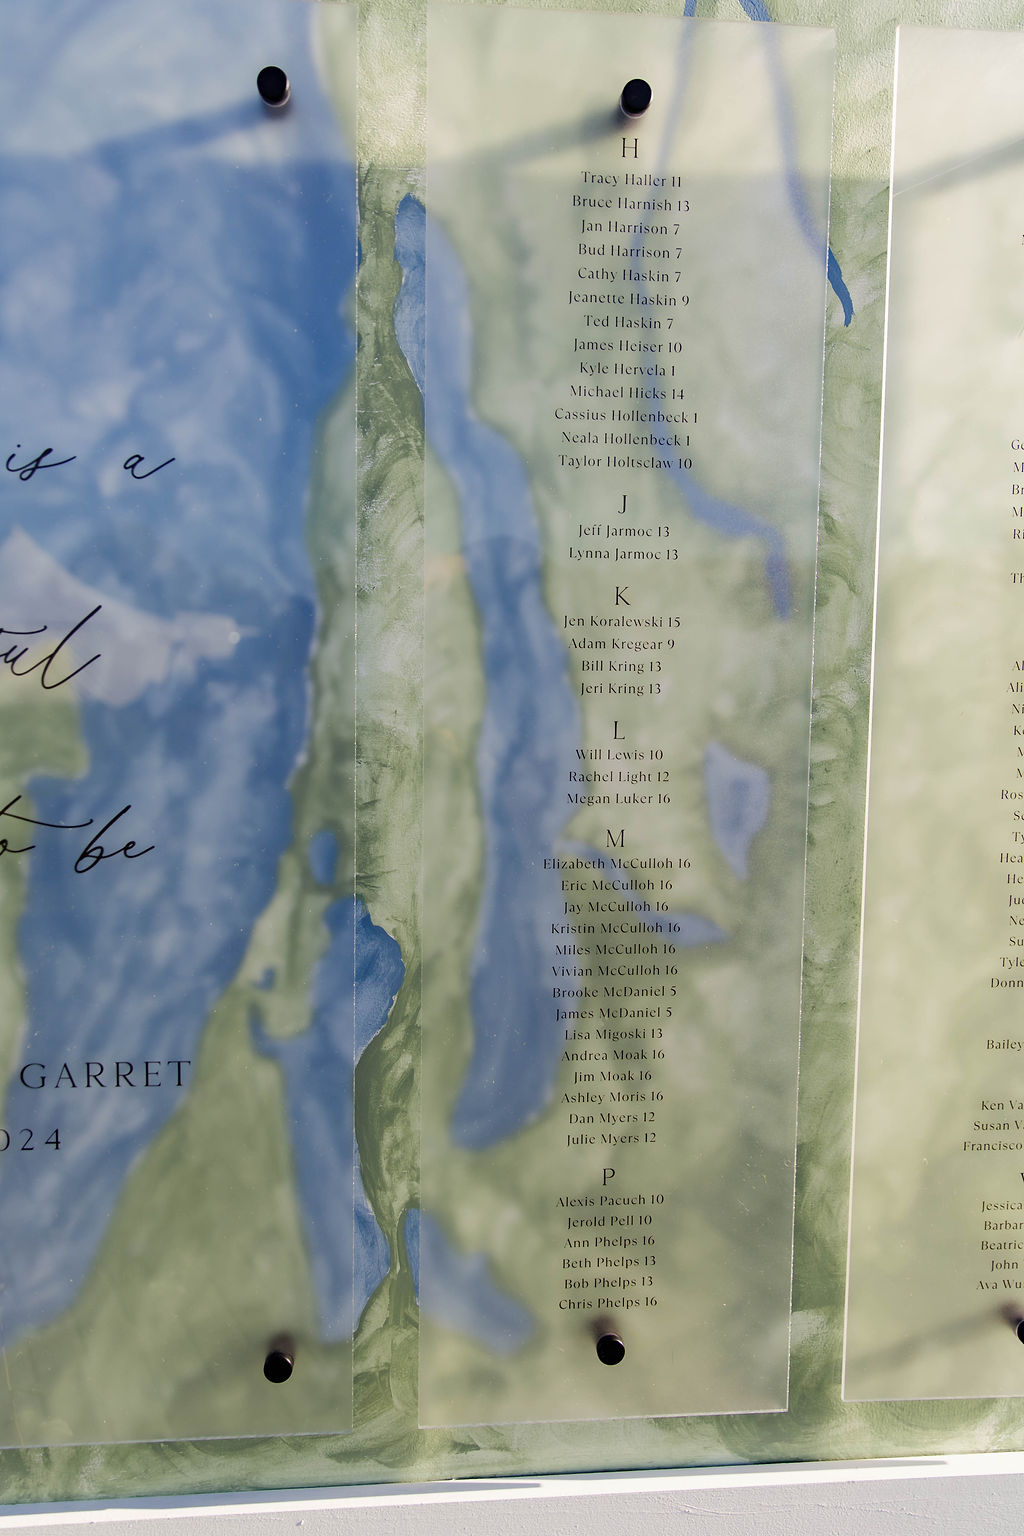 is a
to be
GARRET
H
Tracy Haller 11
Bruce Harnish 13
Jan Harrison 7
Bud Harrison 7
Cathy Haskin 7
Jeanette Haskin 9
Ted Haskin 7
James Heiser 10
Kyle Hervela 1
Michael Hicks 14
Cassius Hollenbeck 1
Neala Hollenbeck 1
Taylor Holtsclaw 10
J
Jeff Jarmoc 13
Lynna Jarmoc 13
K
Jen Koralewski 15
Adam Kregear 9
Bill Kring 13
Jeri Kring 13
L
Will Lewis 10
Rachel Light 12
Megan Luker 16
M
Elizabeth McCulloh 16
Eric McCulloh 16
Jay McCulloh 16
Kristin McCulloh 16
Miles McCulloh 16
Vivian McCulloh 16
Brooke McDaniel 5
James McDaniel 5
Lisa Migoski 13
Andrea Moak 16
Jim Moak 16
Ashley Moris 16
Dan Myers 12
Julie Myers 12
P
Alexis Pacuch 10
Jerold Pell 10
Ann Phelps 16
Beth Phelps 13
Bob Phelps 13
Chris Phelps 16
Bailey
Ken
Susan
Francisco
Jessica
John
Ava